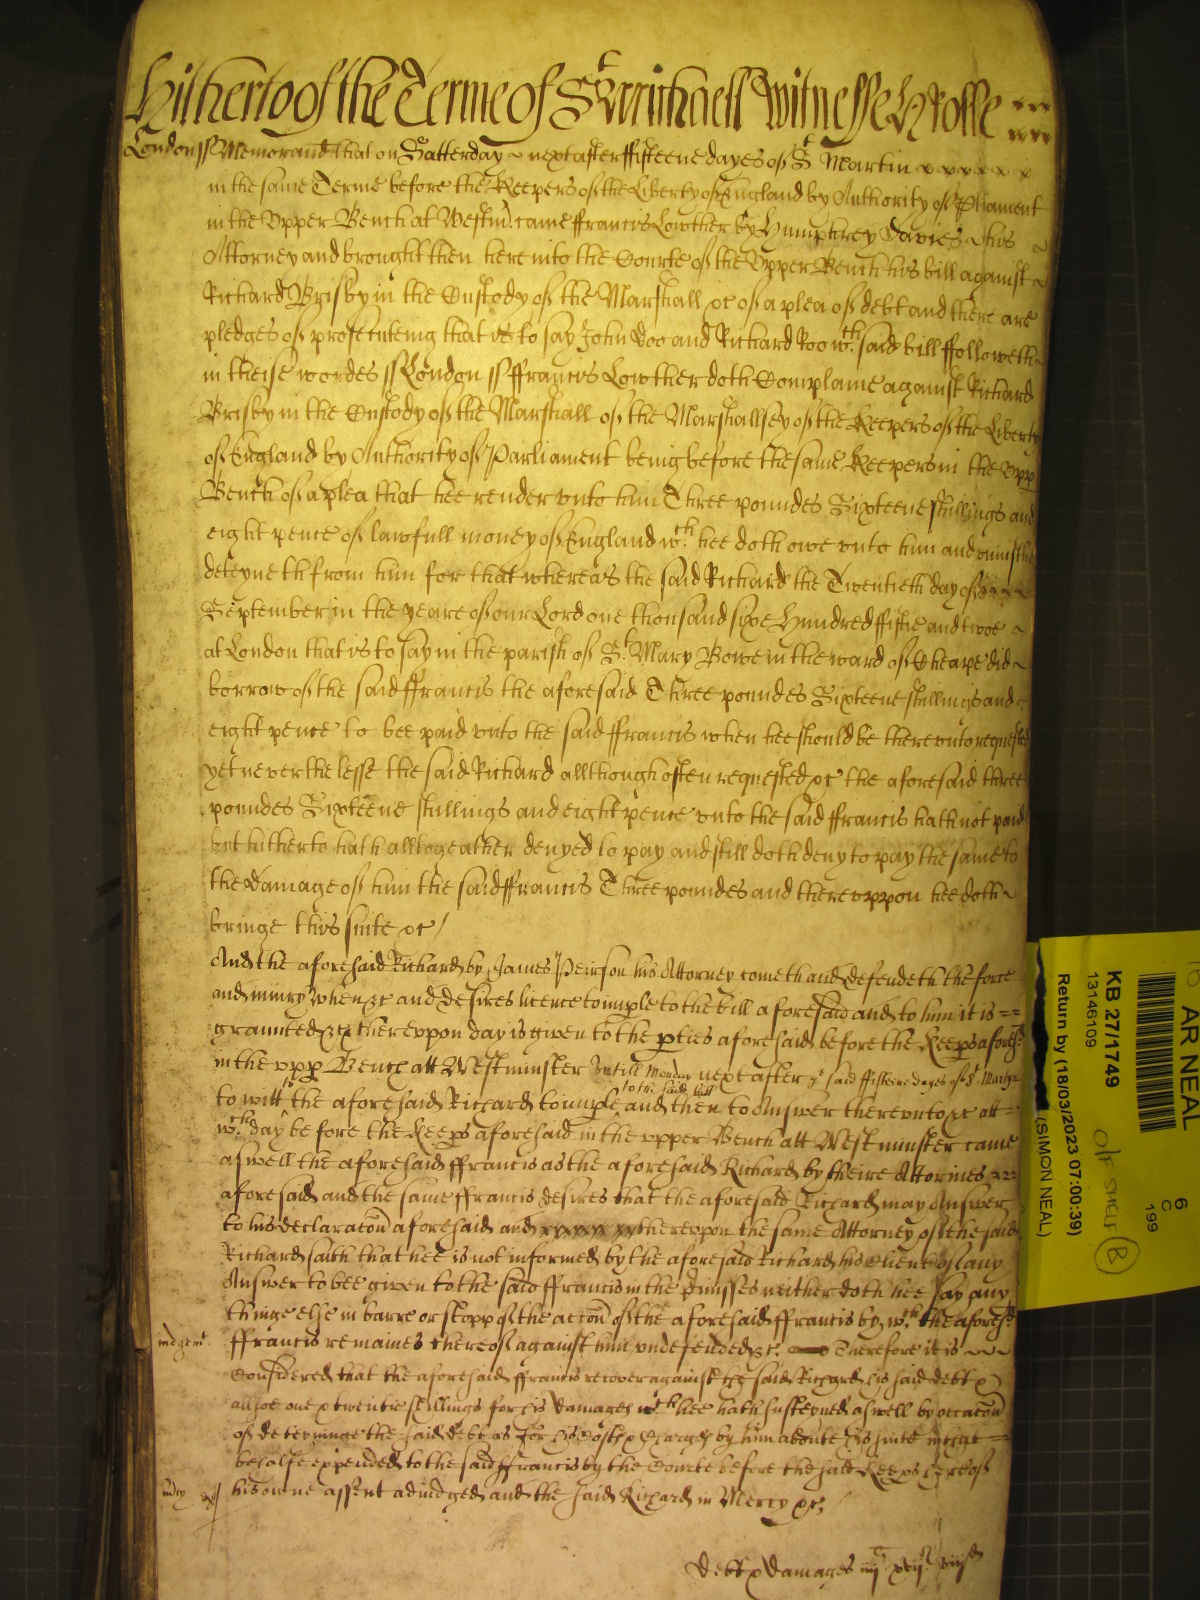 Hitherto of the Terme of St Michaell Witnesse H Rolle
London ss Memorand that on Satterday next after fifteene dayes of St Martin x x x x x x
in the same Terme before the Keepers of the Liberty of England by Authority of Pliament
in the Upper Bench at Westmr came ffrancis Lowther by Humphrey Davies his
Attorney and brought then here into the Courte of the Upper Bench his bill against
Richard Brisby in the Custody of the Marshall &c of a plea of debt and there are
pledges of prosecuteing that is to say John Doo and Richard Roo wch said bill ffolloweth
in theise wordes ss London ss ffrancis Lowther doth Complaine against Richard
Brisby in the Custody of the Marshall of the Marshallsey of the Keepers of the Liberty
of England by Authority of Parliament being before the same Keepers in the Upp
Bench of a plea that hee render unto him Three poundes Sixteene shillings and
eight pence of lawfull money of England wch hee doth owe unto him and uniustlie
deteyneth from him for that whereas the said Richard the Twentieth day of
September in the yeare of our Lord one thousand sixe Hundred ffiftie and twoe
at London that is to say in the parish of St Mary Bowe in the ward of Cheape did
borrow of the said ffrancis the aforesaid Three poundes Sixteene shillings and
eight pence to bee paid unto the said ffrancis when hee should be thereunto requested
yet neverthelesse the said Richard allthough often requested &c the aforesaid three
poundes Sixteene shillings and eight pence unto the said ffrancis hath not paid
but hitherto hath alltogeather denyed to pay and still doth deny to pay the same to
the damage of him the said ffrancis Three poundes and thereuppon hee doth
bringe this suite &c
And the aforesaid Richard by James Peirson his Attorney cometh and defendeth the force
and iniury when &c and desires licence to imple to the bill aforesaid and to him it is
graunted &c thereuppon day is given to the pties aforesaid before the Keeps aforesd
in the upp Bench att Westminster Untill Monday next after ye said ffifteene dayes of St Martyn
to the said bill
to witt the aforesaid Richard to imple and then to Answer thereunto &c att
wch day before the Keeps aforesaid in the upper Bench att Westminster came
aswell the aforesaid ffrancis as the aforesaid Richard by theire Attornies
aforesaid and the same ffrancis desires that the aforesaid Richard may Answer
to his declaracon aforesaid and thereupon the same Attorney of the said
Richard saith that hee is not informed by the aforesaid Richard his Client of any
Answer to bee given to the said ffrancis in the pmisses neither doth hee say any
thinge else in barre or stopp of the accon of the aforesaid ffrancis by wch the aforesd
iudgemt ffrancis remaines thereof against him undefended &c. Therefore it is
Considered that the aforesaid ffrancis recover against the said Richard his said debt &
allsoe one & twentie shillings for his damages wch hee hath susteyned aswell by occacon
of deteyninge the said debt as for his Costs & Charges by him aboute his suite in that
behalfe expended to the said ffrancis by the Courte before the said Keeps hereof
mcy his owne assent adiudged and the said Richard in Mercy &c
Debt & damages iiij xvij viij
AR NEAL
6
C
199
KB 27/1749
13146109
O/F SHELF B
Return by (18/03/2023 07:00:39)
(SIMON NEAL)